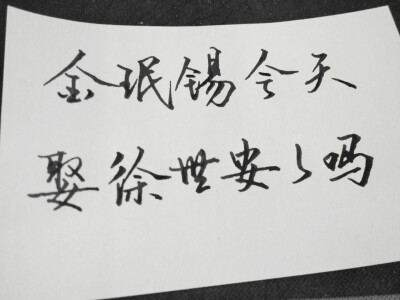 金珉锡今天
娶徐世安了吗